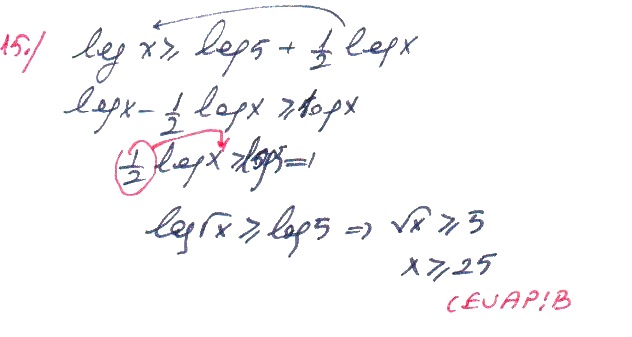 15./ log x ≥ log 5 + 1/2 log x
log x - 1/2 log x ≥ log x
1/2 log x ≥ log 5 ⇒
log √x ≥ log 5 ⇒ √x ≥ 5
x ≥ 25
CEVAP: B